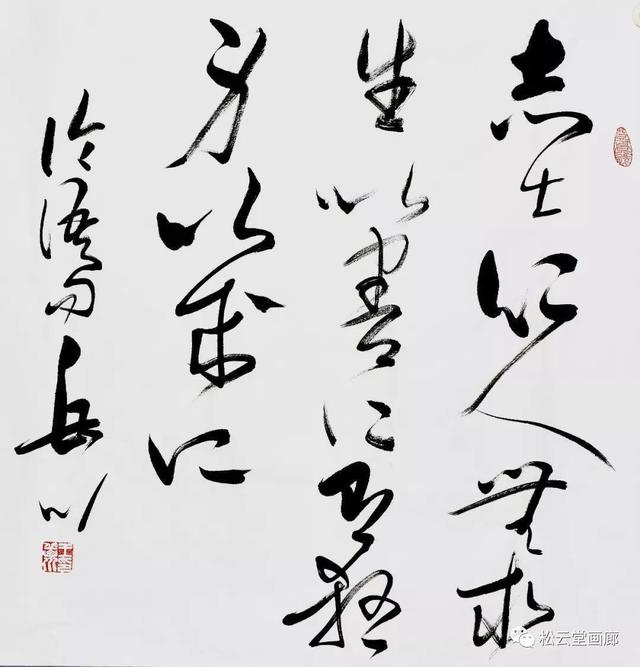 志士仁人無求
生以害仁有殺
身以成仁
論語句岳川
松云堂画廊